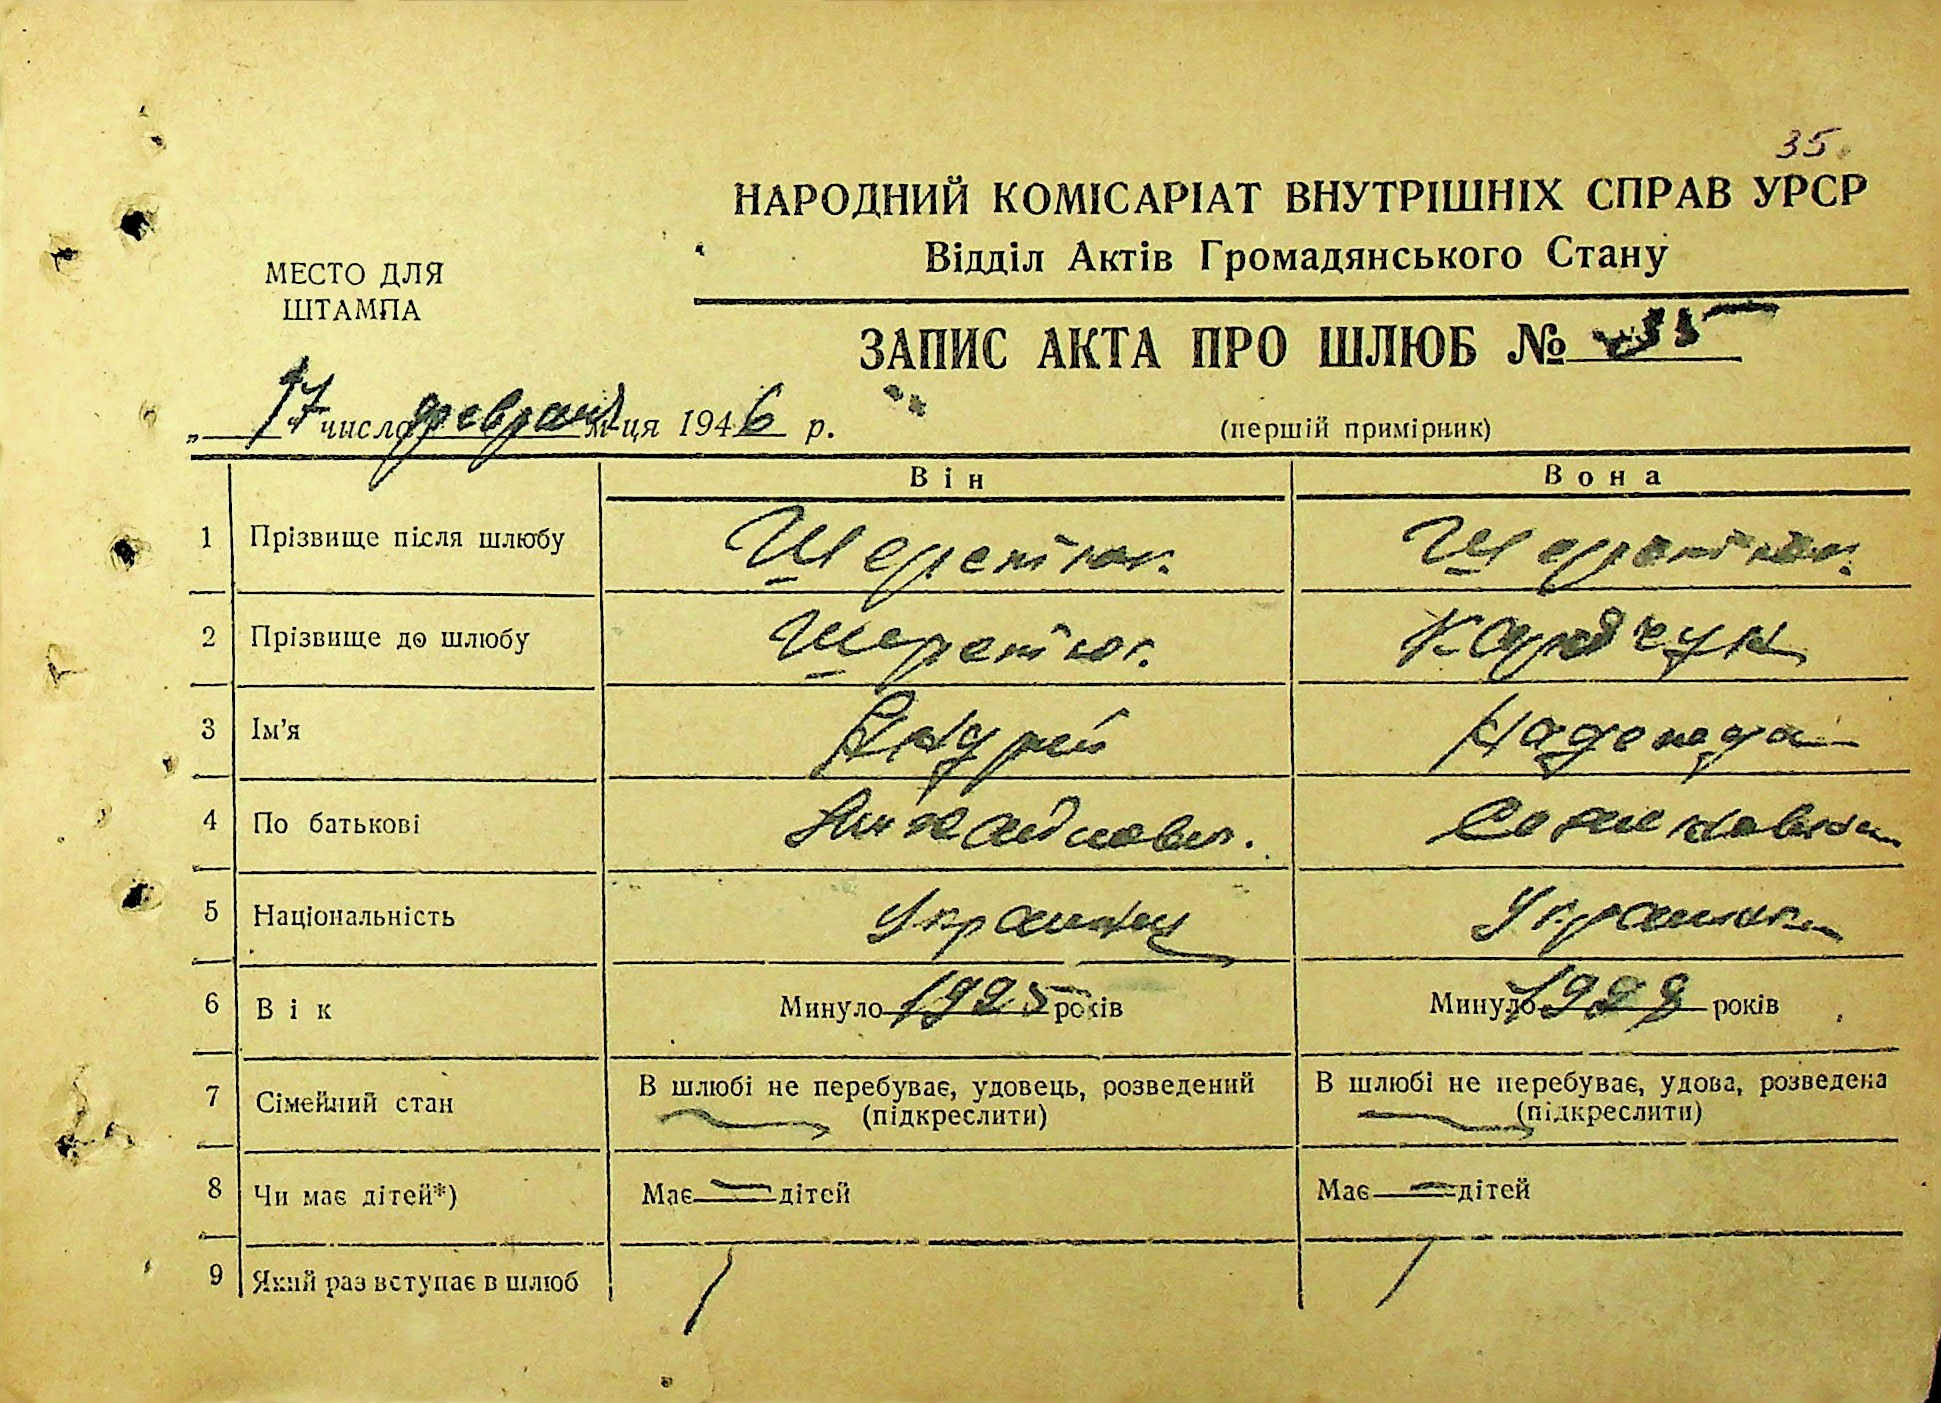 35
НАРОДНИЙ КОМІСАРІАТ ВНУТРІШНІХ СПРАВ УРСР
Відділ Актів Громадянського Стану
МЕСТО ДЛЯ
ШТАМПА
ЗАПИС АКТА ПРО ШЛЮБ № 35
„17" число февраля м-ця 1946 р.
(перший примірник)
Він Вона
1 Прізвище після шлюбу Шеретюк. Шеретюк.
2 Прізвище до шлюбу Шеретюк.
3 Ім'я Андрей Надежда
4 По батькові
5 Національність Украинец Украинка
6 Вік Минуло 1925 років Минуло 1929 років
7 Сімейний стан В шлюбі не перебуває, удовець, розведений В шлюбі не перебуває, удова, розведена
(підкреслити) (підкреслити)
8 Чи має дітей*) Має — дітей Має — дітей
9 Який раз вступає в шлюб 1 1